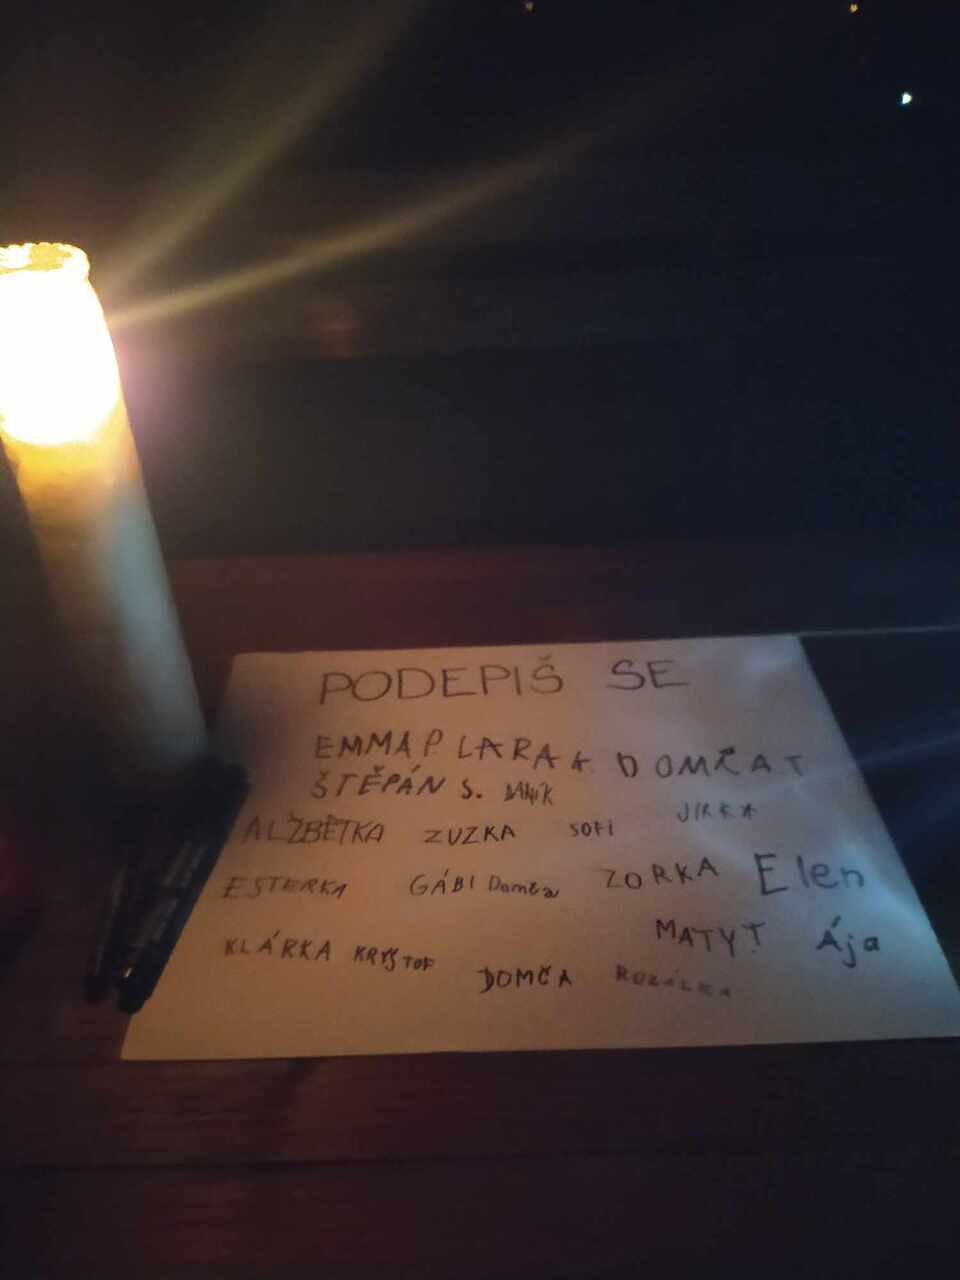 PODEPIŠ SE
EMMA P. LARA K. DOMČA T
ŠTĚPÁN S.
JIRKA
ALŽBĚTKA ZUZKA SOFI
ESTERKA GÁBI Domča ZORKA Elen
MATY T Ája
KLÁRKA KRYŠTOF
DOMČA ROZÁLKA